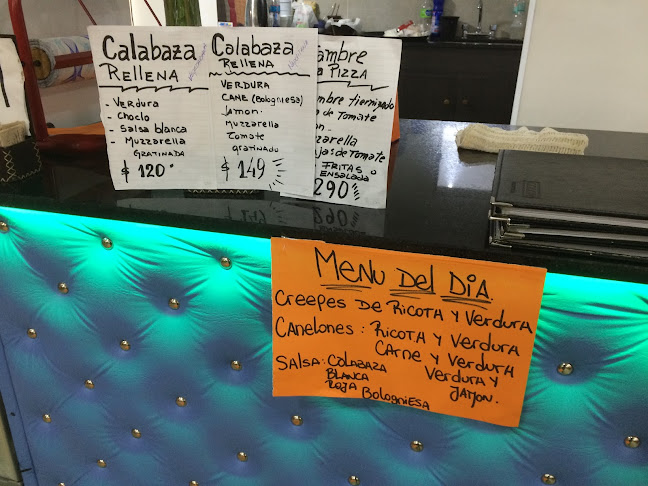 Calabaza
RELLENA
- VERDURA
- CHOCLO
- SALSA blanca
- MUZZARELLA
GRATINADA
$ 120
Calabaza
RELLENA
VERDURA
CANE (Bologniesa)
JAMON
MUZZARELLA
Tomate
gratinado
$ 149
AMBRE
PIZZA
mbre fiernizado
de Tomate
zarella
jas de Tomate
FRITAS O
ENSALADA
290
MENU DEL DIA.
CREEPES DE RICOTA Y VERDURA
CANELONES : RICOTA Y VERDURA
CARNE Y VERDURA
VERDURA Y
JAMON.
SALSA : COLABAZA
BLANCA
ROJA BologniEsa